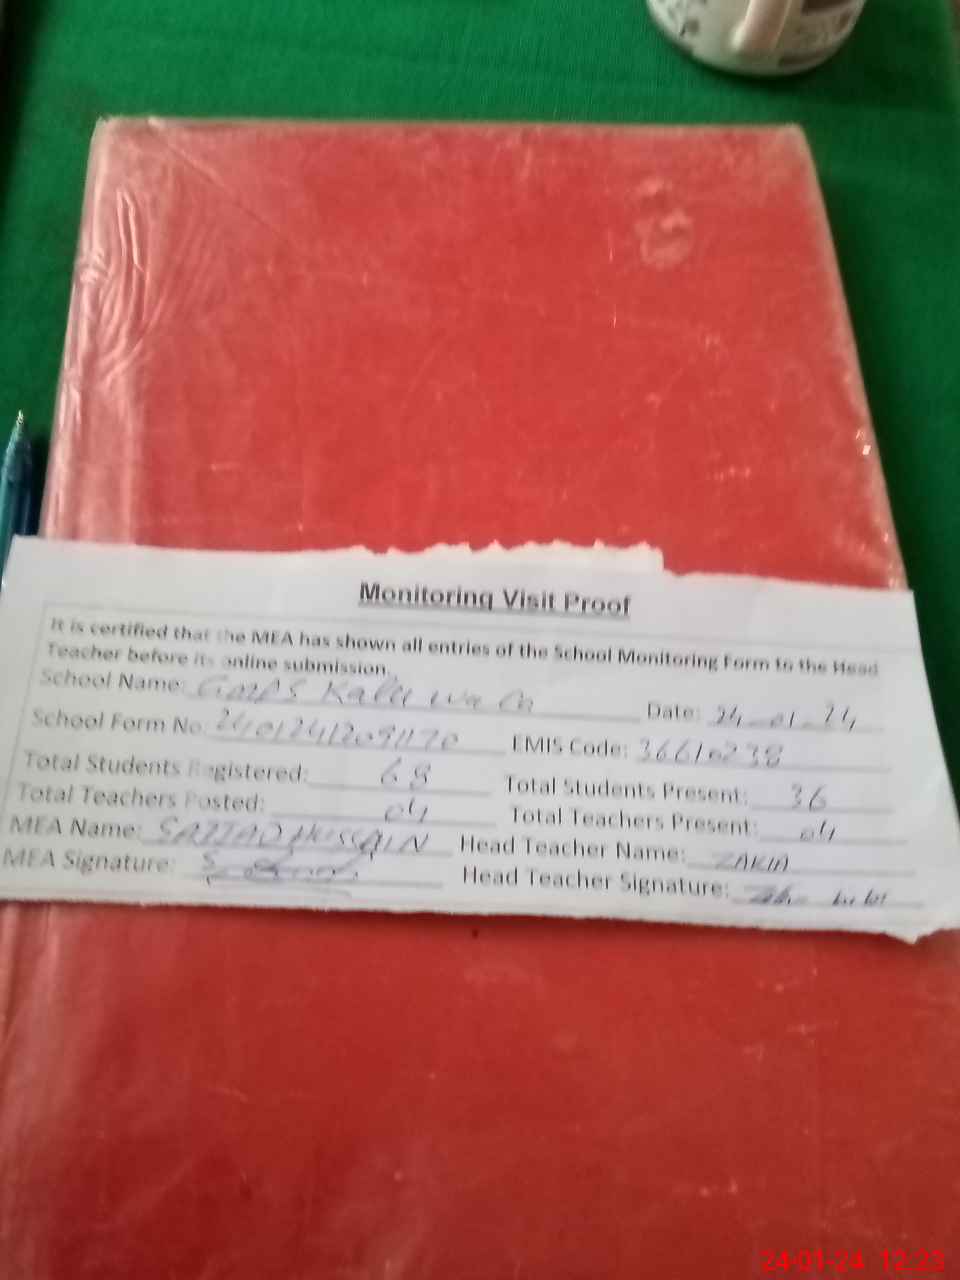 Monitoring Visit Proof
It is certified that the MEA has shown all entries of the School Monitoring Form to the Head
Teacher before its online submission.
School Name: GMPS Kalu wala Date: 24-01-24
School Form No: 24012412091170 EMIS Code: 36610238
Total Students Registered: 68 Total Students Present: 36
Total Teachers Posted: 04 Total Teachers Present: 04
MEA Name: SAJJAD HUSSAIN Head Teacher Name: ZAKIA
MEA Signature: Head Teacher Signature:
24-01-24 12:23